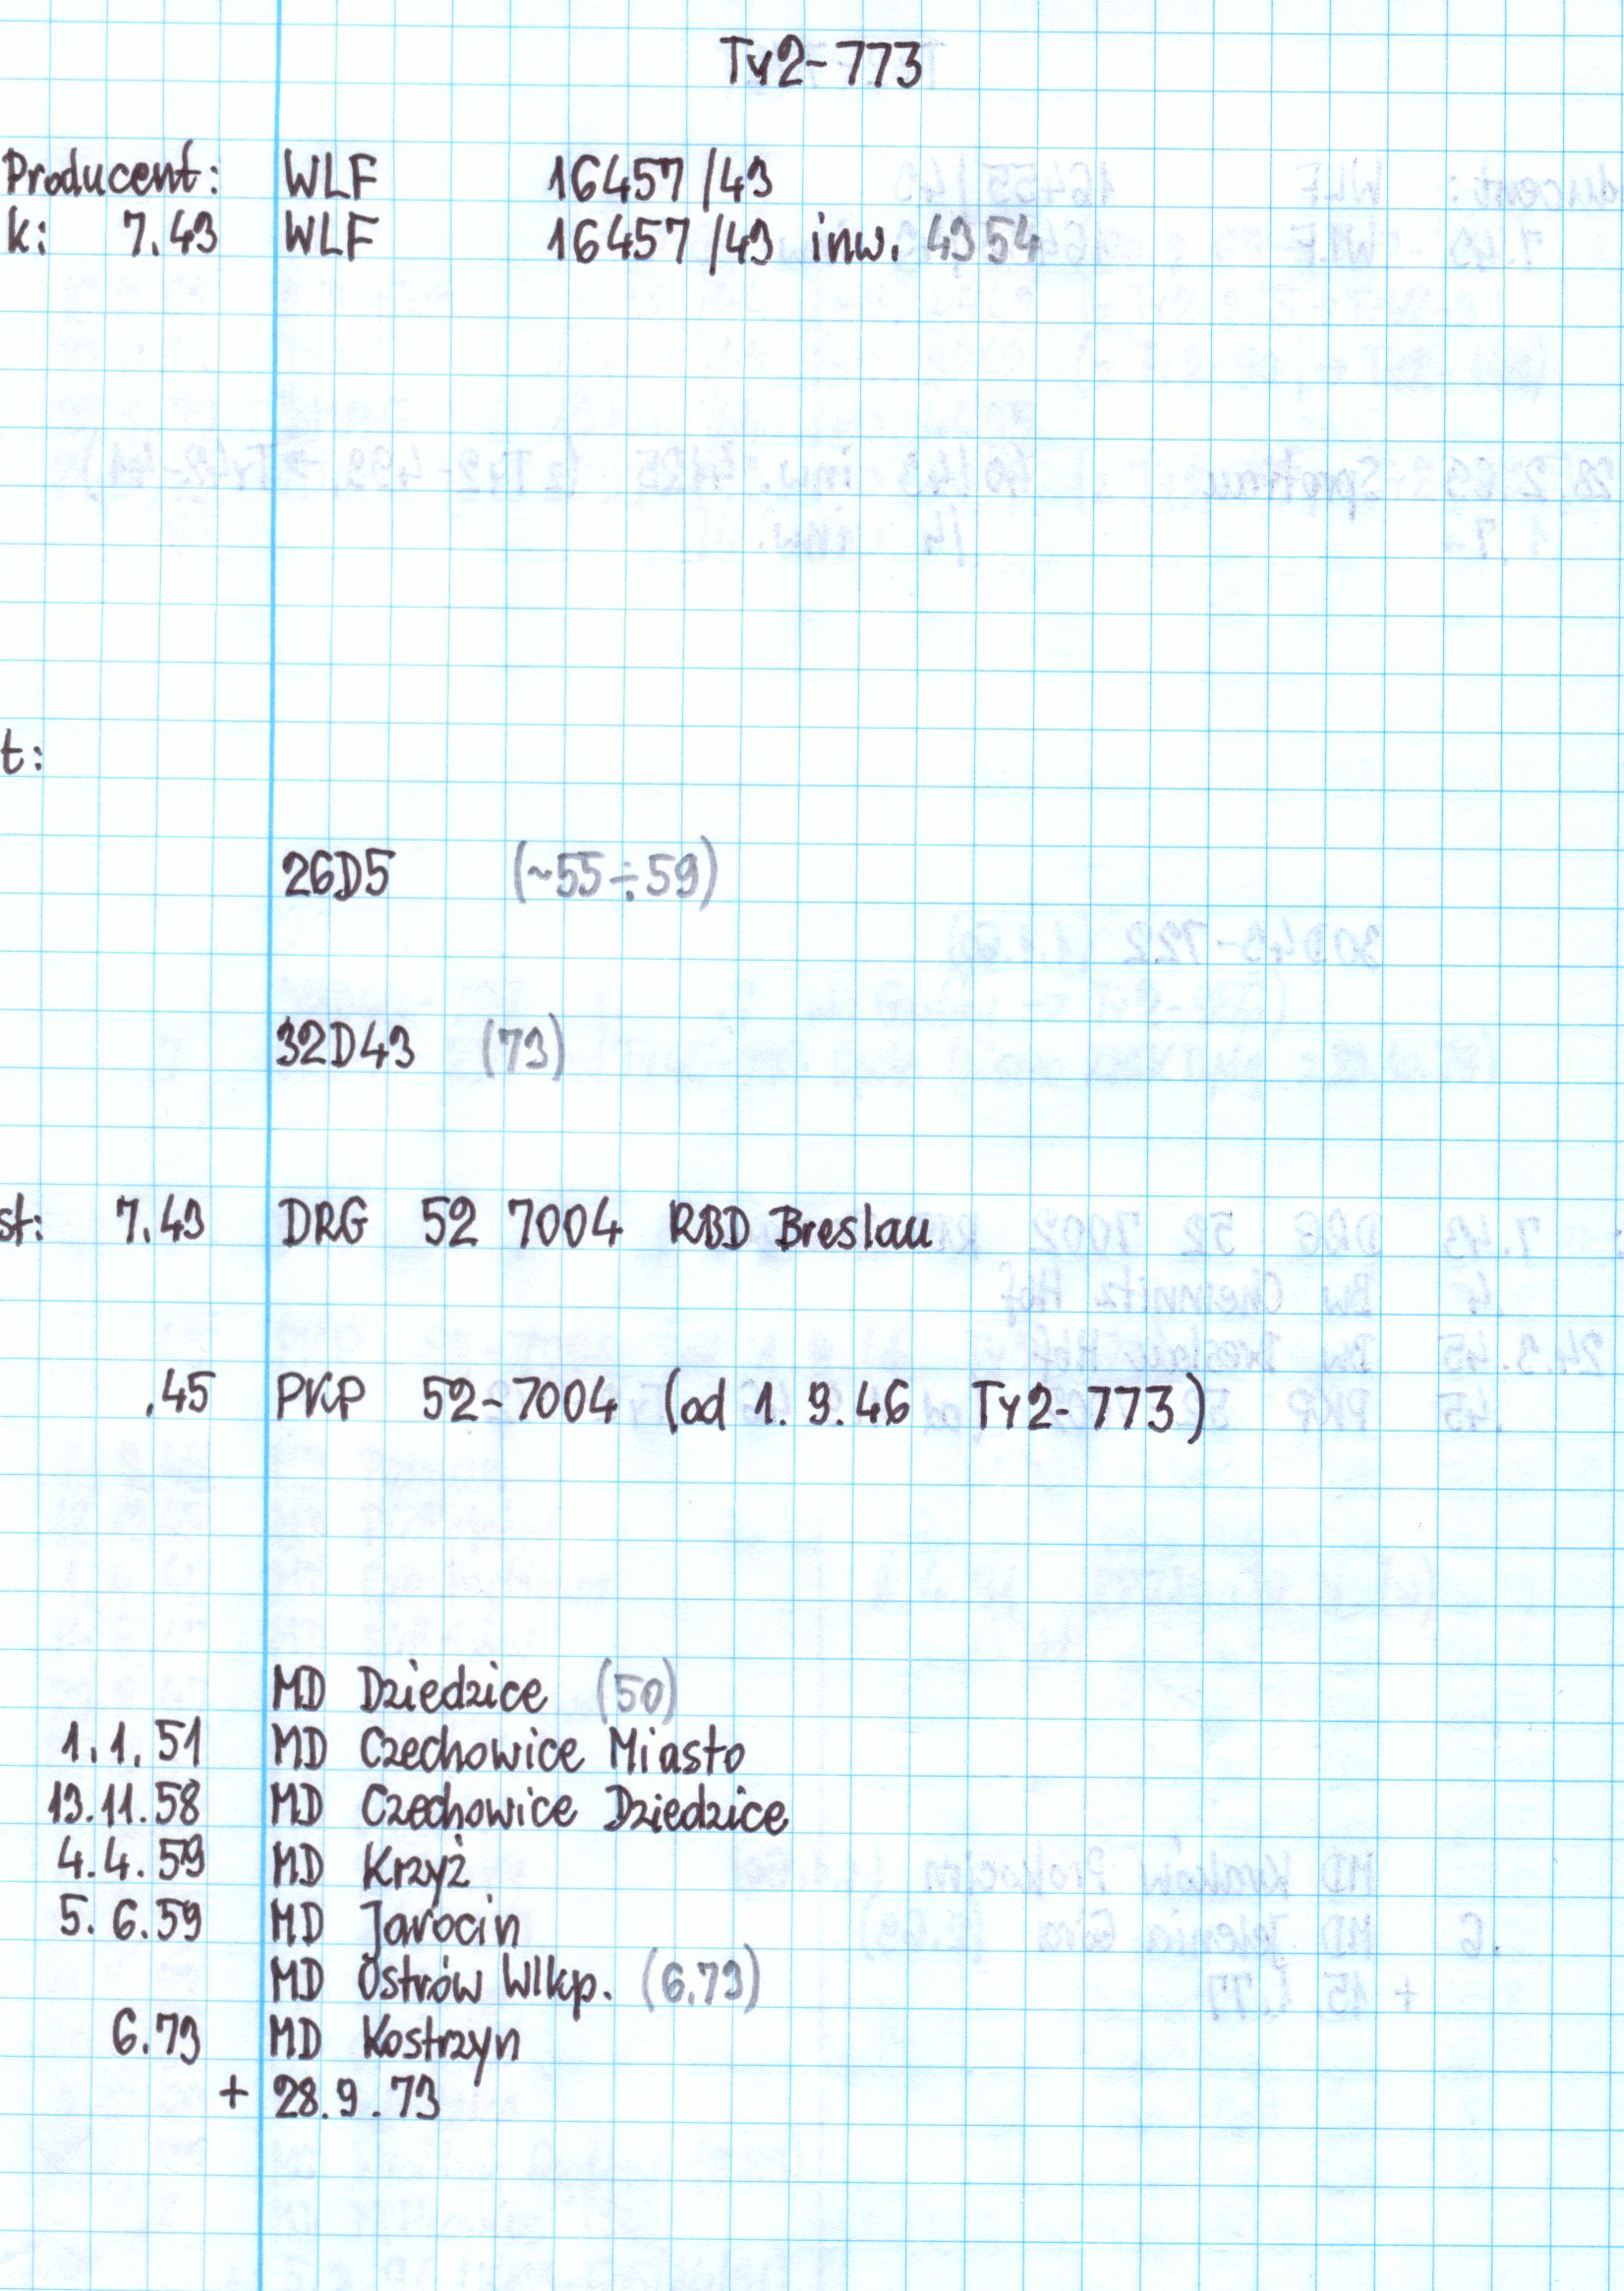 Ty2-773
Producent: WLF 16457/43
k: 7.43 WLF 16457/43 inw. 4354
t:
26D5 (~55÷59)
32D43 (73)
st: 7.43 DRG 52 7004 RBD Breslau
.45 PKP 52-7004 (od 1.9.46 Ty2-773)
MD Dziedzice (50)
1.1.51 MD Czechowice Miasto
13.11.58 MD Czechowice Dziedzice
4.4.59 MD Krzyż
5.6.59 MD Jarocin
MD Ostrów Wlkp. (6.73)
6.73 MD Kostrzyn
+ 28.9.73